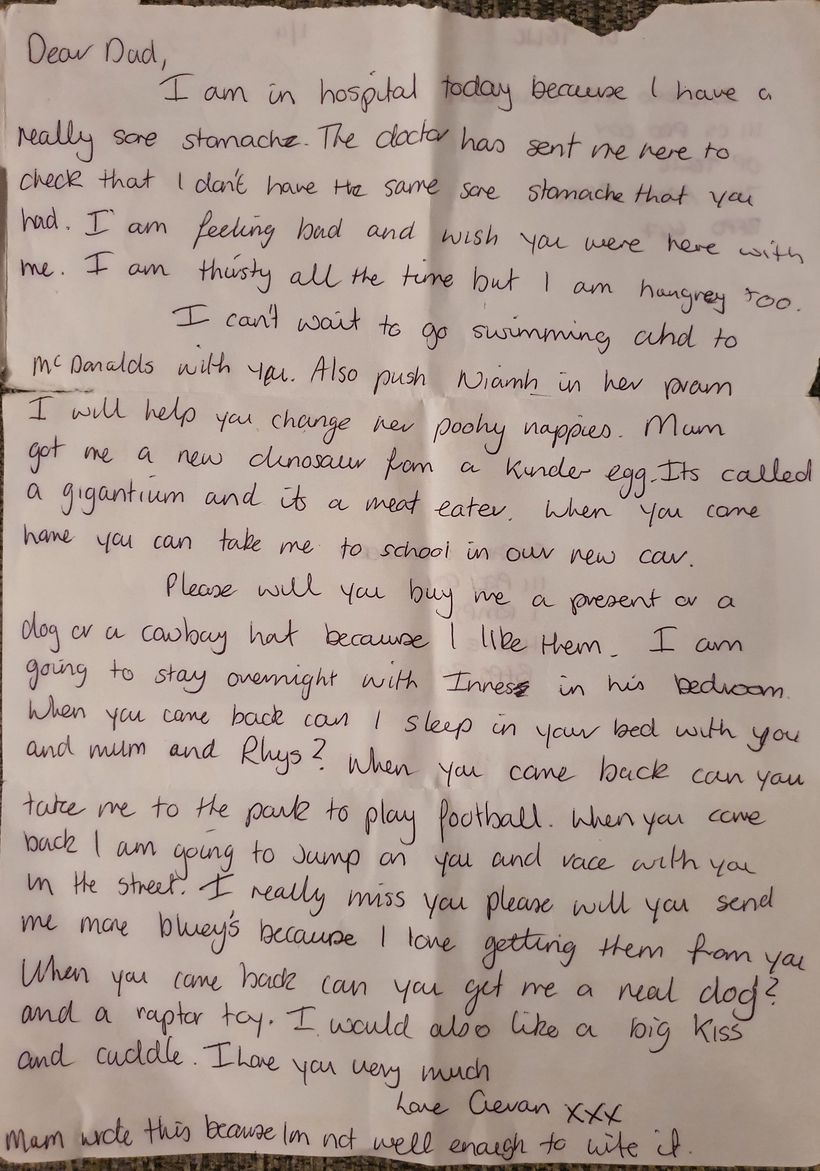 Dear Dad,
I am in hospital today because I have a
really sore stomache. The doctor has sent me here to
check that I don't have the same sore stomache that you
had. I am feeling bad and wish you were here with
me. I am thirsty all the time but I am hungrey too.
I can't wait to go swimming and to
McDonalds with you. Also push Niamh in her pram
I will help you change her poohy nappies. Mum
got me a new dinosaur from a kinder egg. Its called
a gigantium and its a meat eater. When you come
home you can take me to school in our new car.
Please will you buy me a present or a
dog or a cowboy hat because I like them. I am
going to stay overnight with Inness in his bedroom.
When you come back can I sleep in your bed with you
and mum and Rhys? When you come back can you
take me to the park to play football. When you come
back I am going to Jump on you and race with you
in the street. I really miss you please will you send
me more bluey's because I love getting them from you
When you come back can you get me a real dog?
and a raptor toy. I would also like a big kiss
and cuddle. I love you very much
Love Cievan xxx
Mum wrote this because Im not well enough to write it.